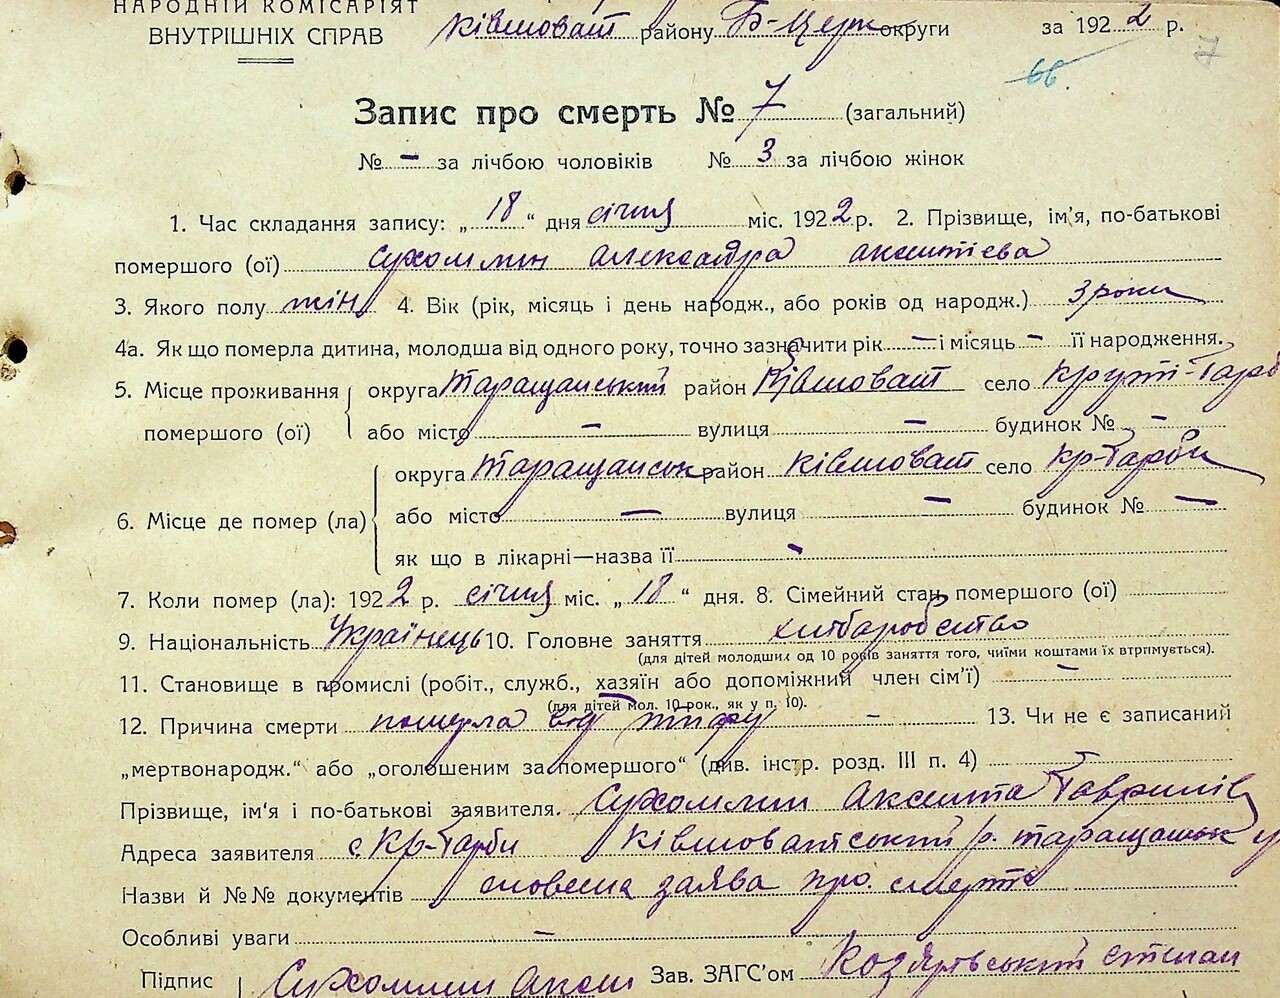 НАРОДНІЙ КОМІСАРІЯТ
ВНУТРІШНІХ СПРАВ
Ківшоват району Б-Церк округи за 1922 р.
7
66.
Запис про смерть № 7 (загальний)
№ — за лічбою чоловіків № 3 за лічбою жінок
1. Час складання запису: „18“ дня січня міс. 1922 р. 2. Прізвище, ім'я, по-батькові
помершого (ої) Сухомлин Александра Аксентієва
3. Якого полу жін 4. Вік (рік, місяць і день народж., або років од народж.) 3 роки
4а. Як що померла дитина, молодша від одного року, точно зазначити рік — і місяць — її народження.
5. Місце проживання округа Таращанський район Ківшоват село Круті-Горб
помершого (ої) або місто — вулиця — будинок № —
округа Таращанськ район Ківшоват село Кр-Горби
6. Місце де помер (ла) або місто — вулиця — будинок № —
як що в лікарні—назва її -
7. Коли помер (ла): 1922 р. січня міс. „18“ дня. 8. Сімейний стан помершого (ої)
9. Національність Українець 10. Головне заняття хліборобство
(для дітей молодших од 10 років заняття того, чиїми коштами їх втримується).
11. Становище в промислі (робіт., служб., хазяїн або допоміжний член сім'ї) —
(для дітей мол. 10 рок., як у п. 10).
12. Причина смерти померла від тифу - 13. Чи не є записаний
„мертвонародж.“ або „оголошеним за помершого“ (див. інстр. розд. III п. 4)
Прізвище, ім'я і по-батькові заявителя. Сухомлин Аксента Гаврилів
Адреса заявителя с Кр-Горби Ківшоватський р. Таращанськ у
Назви й №№ документів словесна заява про смерть
Особливі уваги —
Підпис Сухомлин Аксен Зав. ЗАГС'ом Козярівський Степан